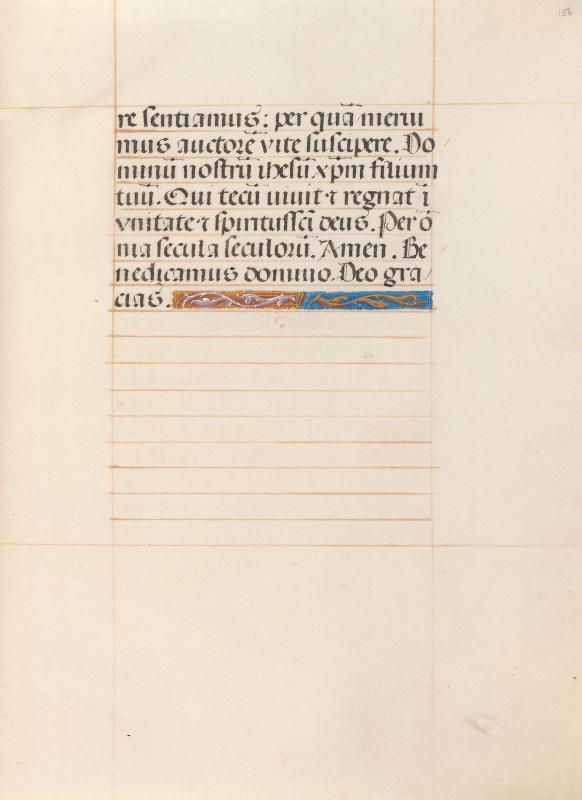 150
re sentiamus: per quā merui
mus auctorē vite suscipere. Do
minū nostrū ihesū xp̄m filium
tuū. Qui tecū uiuit ⁊ regnat ī
vnitate ⁊ spiritussc̄i deus. Per ō
nia secula seculorū. Amen. Be
nedicamus domino. Deo gra/
cias.